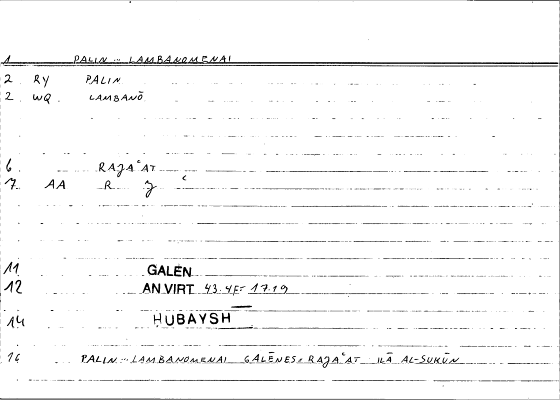 1 PALIN... LAMBANOMENAI
2 RY PALIN
2 WQ LAMBANŌ
6 RAJAʿAT
7 AA R J ʿ
11 GALEN
12 AN.VIRT 43.4F= 17.19
14 HUBAYSH
16 PALIN... LAMBANOMENAI GALĒNES= RAJAʿAT ILĀ AL-SUKŪN